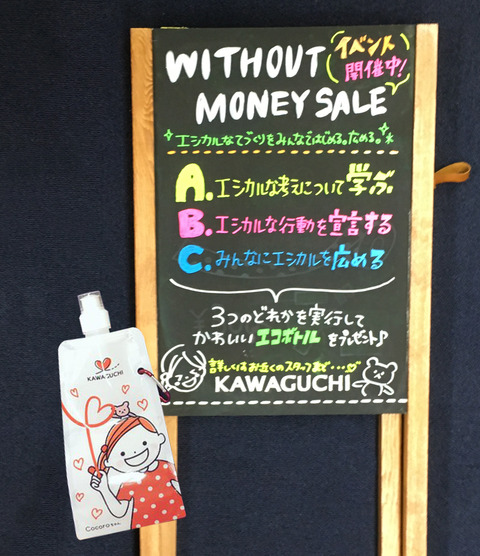 WITHOUT
MONEY SALE
イベント
開催中!
エシカルなてづくりをみんなではじめる。広める。
A.エシカルな考えについて学ぶ
B.エシカルな行動を宣言する
C.みんなにエシカルを広める
3つのどれかを実行して
かわいいエコボトルをプレゼント♪
詳しくはお近くのスタッフまで…
KAWAGUCHI
KAWAGUCHI